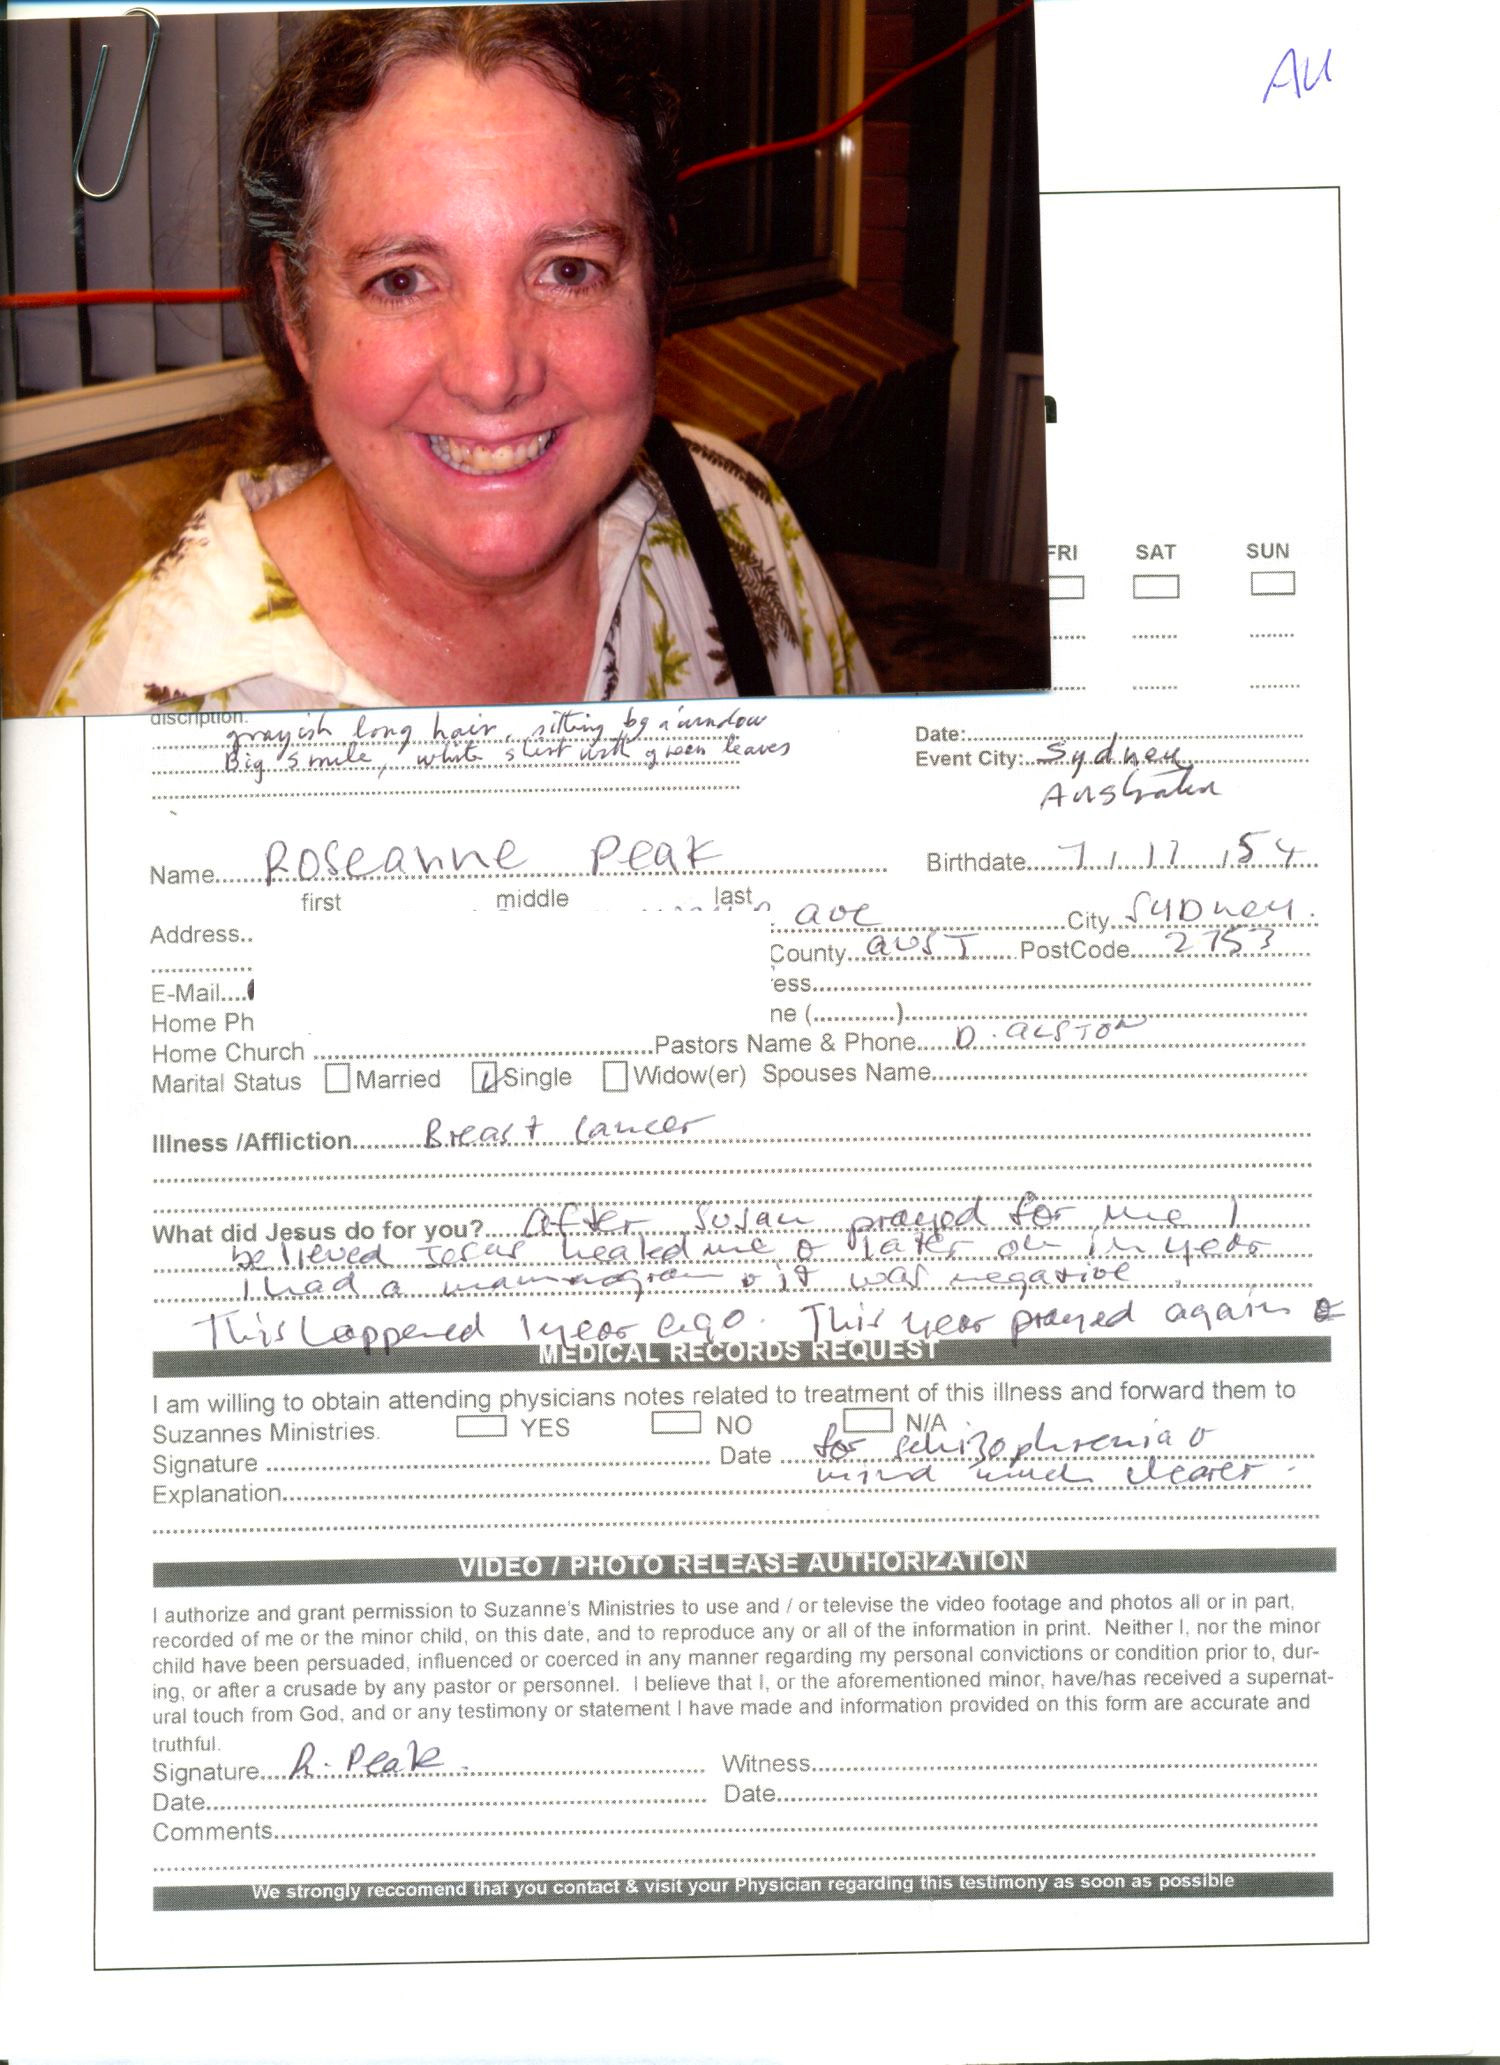 AU
FRI SAT SUN
discription:
grayish long hair, sitting by a window
Big smile, white shirt with green leaves
Date:
Event City: Sydney
Australia
Name Roseanne Peak Birthdate 7, 11, 54
first middle last
Address.. ave City Sydney.
County AUST PostCode 2753
E-Mail.... ess
Home Ph ne ( )
Home Church Pastors Name & Phone D. ALSTON
Marital Status Married Single Widow(er) Spouses Name
Illness /Affliction Breast Cancer
What did Jesus do for you? After Susan prayed for me I
believed Jesus healed me & later on in year
I had a mammogram & it was negative.
This happened 1 year ago. This year prayed again &
MEDICAL RECORDS REQUEST
I am willing to obtain attending physicians notes related to treatment of this illness and forward them to
Suzannes Ministries. YES NO N/A
for schizophrenia &
Signature Date
mind much clearer.
Explanation
VIDEO / PHOTO RELEASE AUTHORIZATION
I authorize and grant permission to Suzanne's Ministries to use and / or televise the video footage and photos all or in part,
recorded of me or the minor child, on this date, and to reproduce any or all of the information in print. Neither I, nor the minor
child have been persuaded, influenced or coerced in any manner regarding my personal convictions or condition prior to, dur-
ing, or after a crusade by any pastor or personnel. I believe that I, or the aforementioned minor, have/has received a supernat-
ural touch from God, and or any testimony or statement I have made and information provided on this form are accurate and
truthful.
Signature R. Peak. Witness
Date Date
Comments
We strongly reccomend that you contact & visit your Physician regarding this testimony as soon as possible